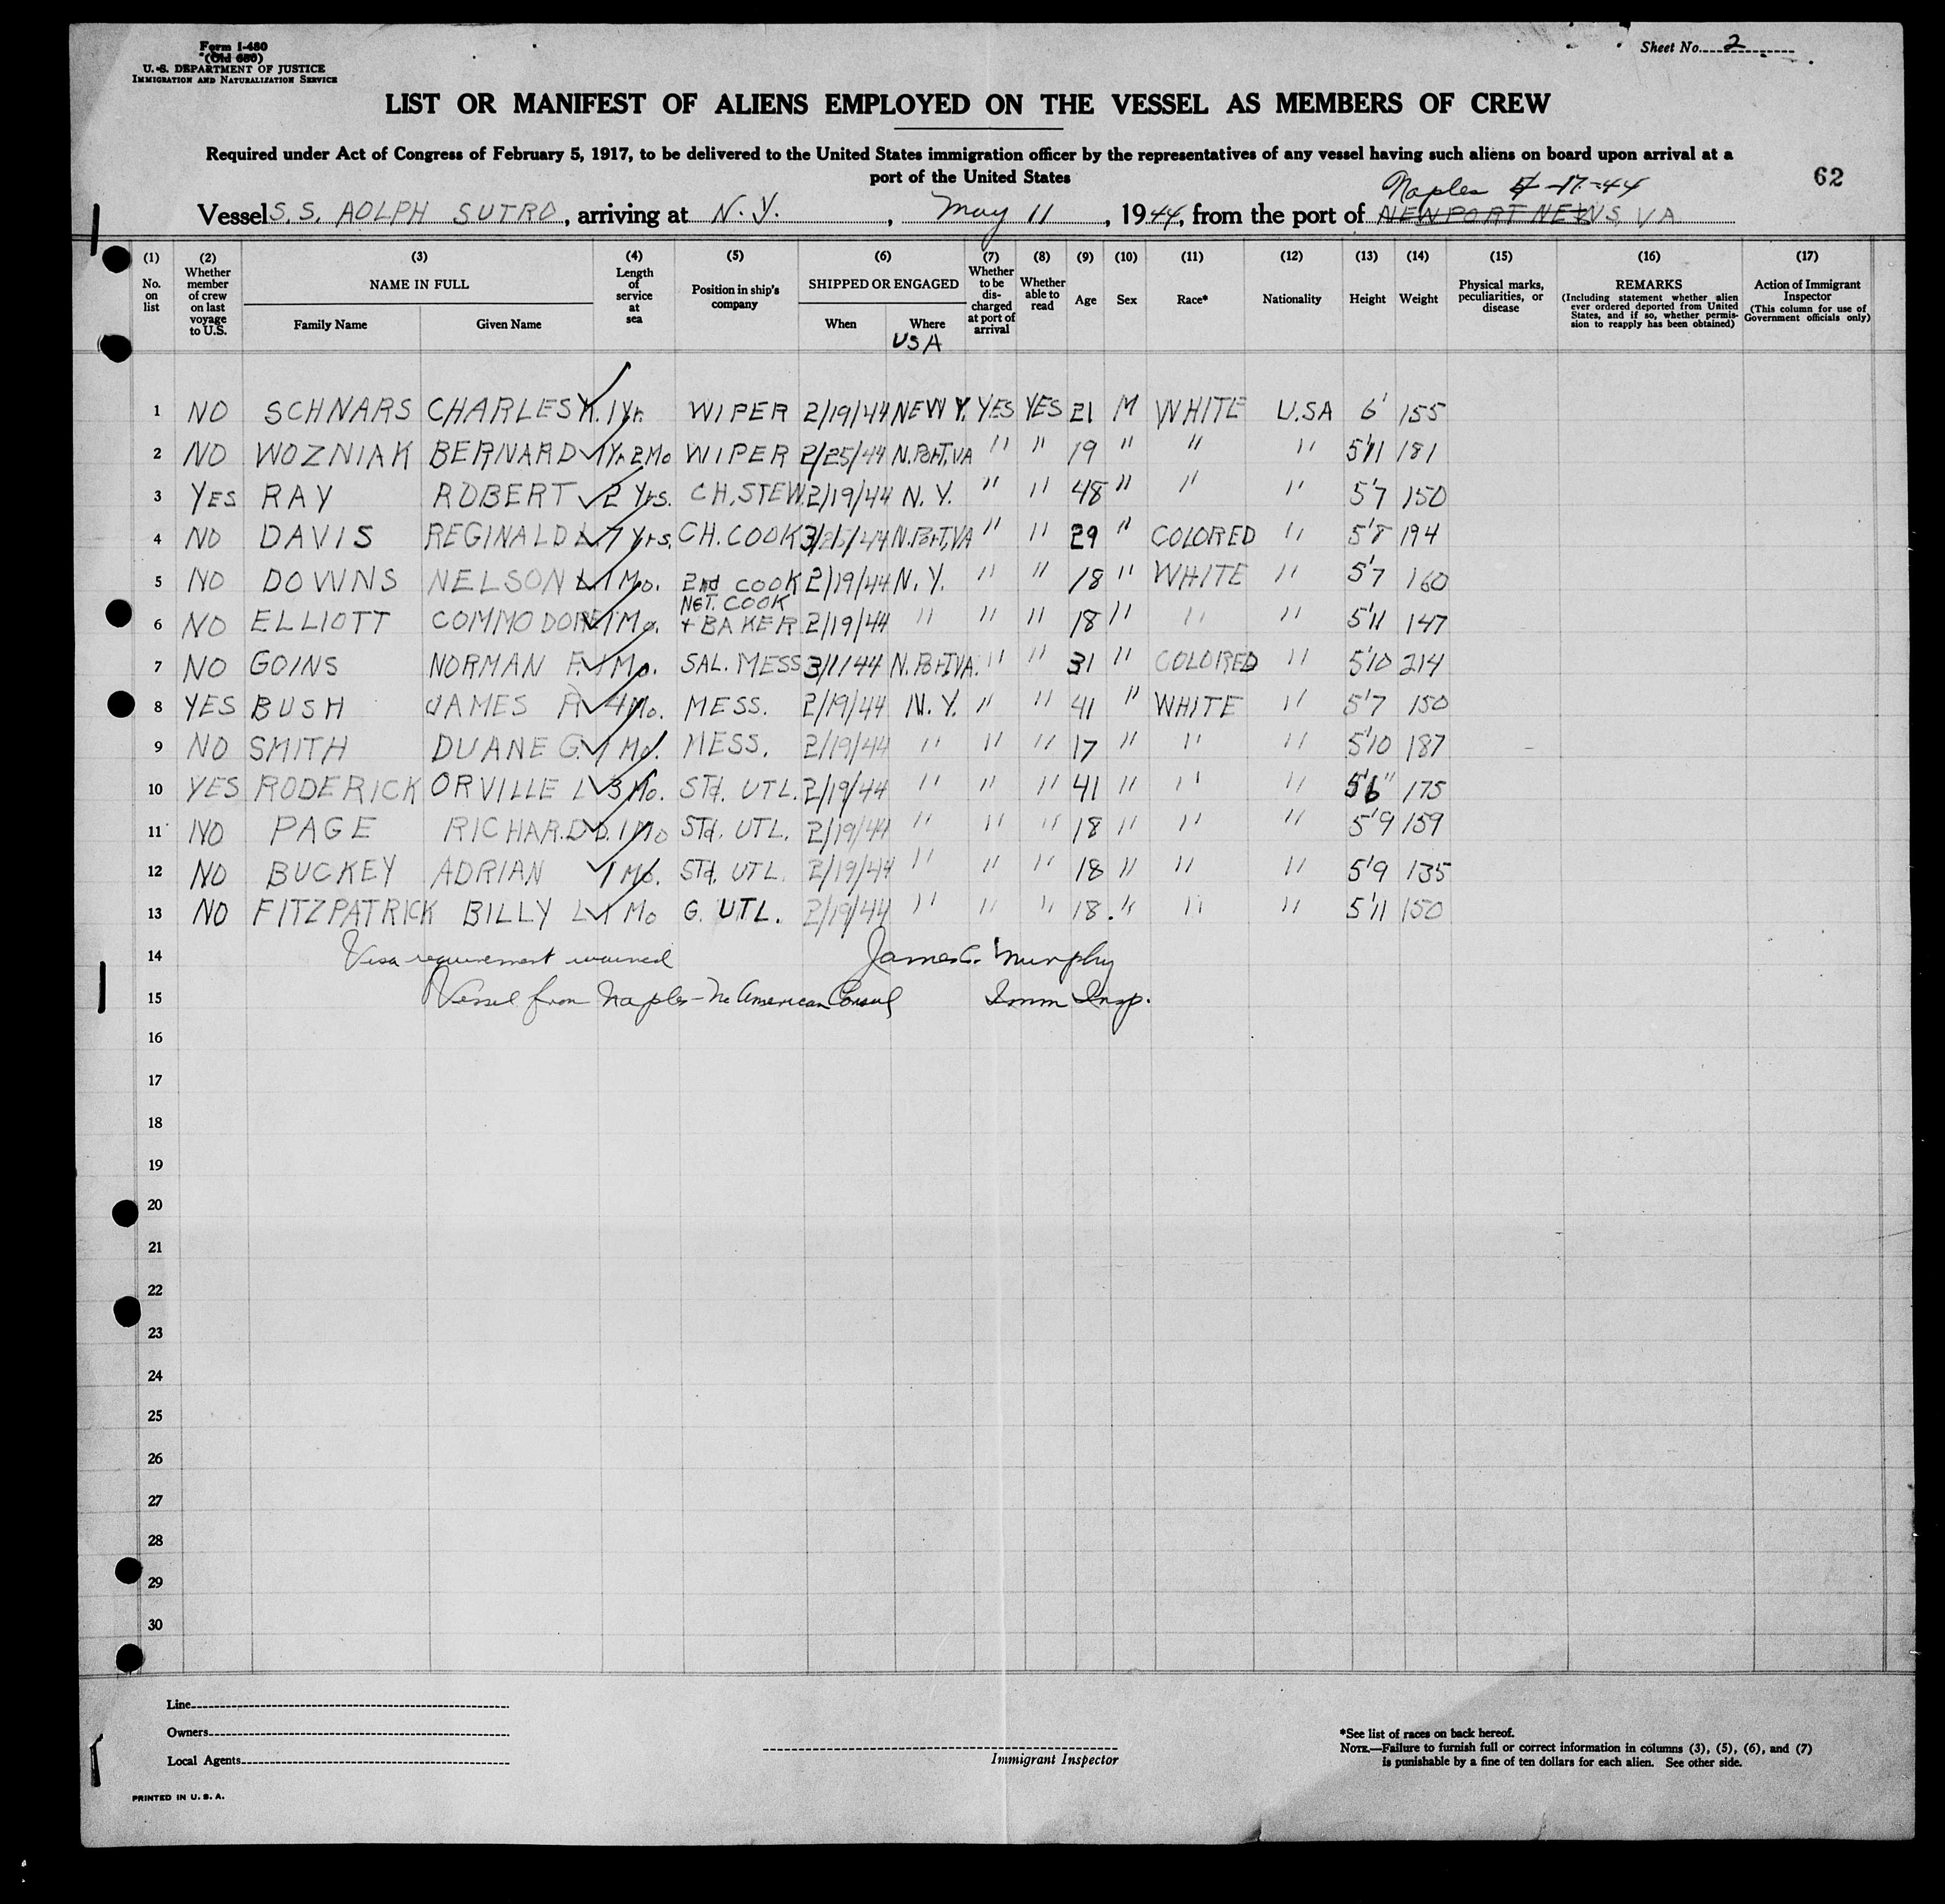 Form 1-480
(Old 680)
U. S. DEPARTMENT OF JUSTICE
IMMIGRATION AND NATURALIZATION SERVICE
Sheet No. 2
LIST OR MANIFEST OF ALIENS EMPLOYED ON THE VESSEL AS MEMBERS OF CREW
Required under Act of Congress of February 5, 1917, to be delivered to the United States immigration officer by the representatives of any vessel having such aliens on board upon arrival at a
port of the United States
62
Naples 4-17-44
Vessel S.S. ADLPH SUTRO, arriving at N. Y., May 11, 1944, from the port of NEWPORT NEWS, VA
(1) No. on list
(2) Whether member of crew on last voyage to U.S.
(3) NAME IN FULL Family Name Given Name
(4) Length of service at sea
(5) Position in ship's company
(6) SHIPPED OR ENGAGED When Where USA
(7) Whether to be discharged at port of arrival
(8) Whether able to read
(9) Age
(10) Sex
(11) Race*
(12) Nationality
(13) Height
(14) Weight
(15) Physical marks, peculiarities, or disease
(16) REMARKS (Including statement whether alien ever ordered deported from United States, and if so, whether permission to reapply has been obtained)
(17) Action of Immigrant Inspector (This column for use of Government officials only)
1 NO SCHNARS CHARLES 1 Yr. WIPER 2/19/44 NEW Y. YES YES 21 M WHITE U.SA 6' 155
2 NO WOZNIAK BERNARD 1Yr 2Mo WIPER 2/25/44 N.PORT,VA " " 19 " " " 5'11 181
3 YES RAY ROBERT 2 Yrs. CH.STEW. 2/19/44 N.Y. " " 48 " " " 5'7 150
4 NO DAVIS REGINALD L. 7 Yrs. CH. COOK N.PORT,VA " " 29 " COLORED " 5'8 194
5 NO DOWNS NELSON L 1 Mo. 2nd COOK 2/19/44 N.Y. " " 18 " WHITE " 5'7 160
6 NO ELLIOTT COMMODORE 1 Mo. NGT. COOK + BAKER 2/19/44 " " " 18 " " " 5'11 147
7 NO GOINS NORMAN F. 1 Mo. SAL. MESS 3/1/44 N.PORT,VA. " " 31 " COLORED " 5'10 214
8 YES BUSH JAMES R 4 Mo. MESS. 2/19/44 N.Y. " " 41 " WHITE " 5'7 150
9 NO SMITH DUANE G. 1 Mo. MESS. 2/19/44 " " " 17 " " " 5'10 187
10 YES RODERICK ORVILLE L 3 Mo. STd. UTL. 2/19/44 " " " 41 " " " 5'6" 175
11 NO PAGE RICHARD D. 1 Mo STd. UTL. 2/19/44 " " " 18 " " " 5'9 159
12 NO BUCKEY ADRIAN 1 Mo. STd. UTL. 2/19/44 " " " 18 " " " 5'9 135
13 NO FITZPATRICK BILLY L 1 Mo G. UTL. 2/19/44 " " " 18. " " " 5'11 150
14 Visa requirement waived James C. Murphy
15 Vessel from Naples - No American Consul Imm Insp.
16
17
18
19
20
21
22
23
24
25
26
27
28
29
30
Line
Owners
Local Agents
Immigrant Inspector
*See list of races on back hereof.
NOTE.—Failure to furnish full or correct information in columns (3), (5), (6), and (7)
is punishable by a fine of ten dollars for each alien. See other side.
PRINTED IN U. S. A.